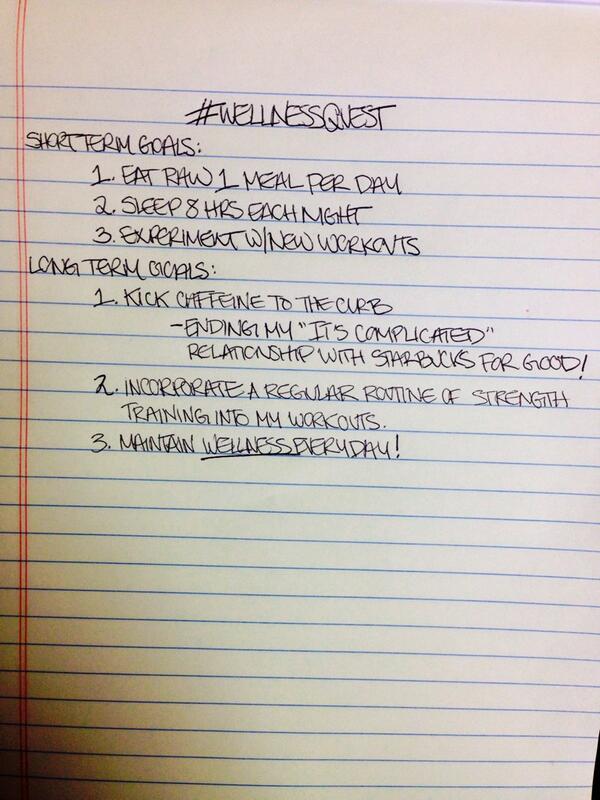 #WELLNESSQUEST
SHORT TERM GOALS:
1. EAT RAW 1 MEAL PER DAY
2. SLEEP 8 HRS EACH NIGHT
3. EXPERIMENT W/NEW WORKOUTS
LONG TERM GOALS:
1. KICK CAFFEINE TO THE CURB
-ENDING MY "IT'S COMPLICATED"
RELATIONSHIP WITH STARBUCKS FOR GOOD!
2. INCORPORATE A REGULAR ROUTINE OF STRENGTH
TRAINING INTO MY WORKOUTS.
3. MAINTAIN WELLNESS EVERYDAY!